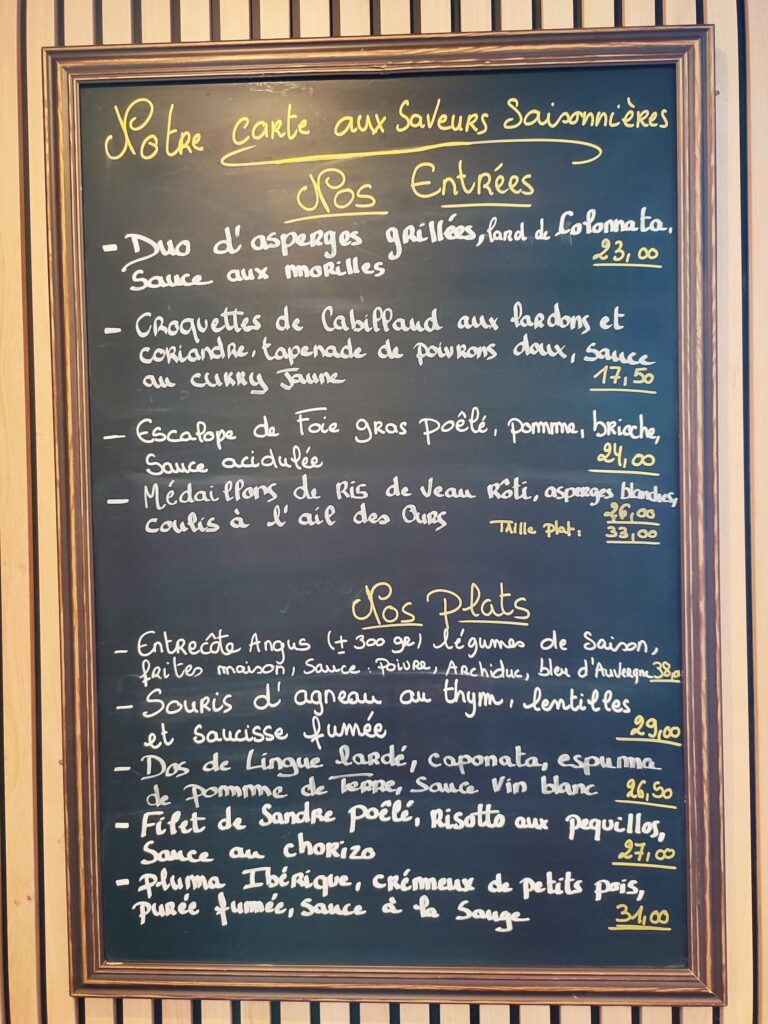 Notre carte aux Saveurs Saisonnières
Nos Entrées
- Duo d'asperges grillées, lard de Colonnata.
Sauce aux morilles 23,00
- Croquettes de Cabillaud aux lardons et
coriandre, tapenade de poivrons doux, sauce
au curry Jaune 17,50
- Escalope de Foie gras poêlé, pomme, brioche,
Sauce acidulée 24,00
- Médaillons de Ris de veau Rôti, asperges blanches,
coulis à l'ail des Ours 26,00
Taille plat: 33,00
Nos plats
- Entrecôte Angus (± 300 gr) légumes de Saison,
frites maison, Sauce: Poivre, Archiduc, bleu d'Auvergne 38,0
- Souris d'agneau au thym, lentilles
et saucisse fumée 29,00
- Dos de Lingue lardé, caponata, espuma
de pomme de Terre, Sauce Vin blanc 26,50
- Filet de Sandre poêlé, Risotto aux pequillos,
Sauce au chorizo 27,00
- pluma Ibérique, crémeux de petits pois,
purée fumée, Sauce à la Sauge 31,00